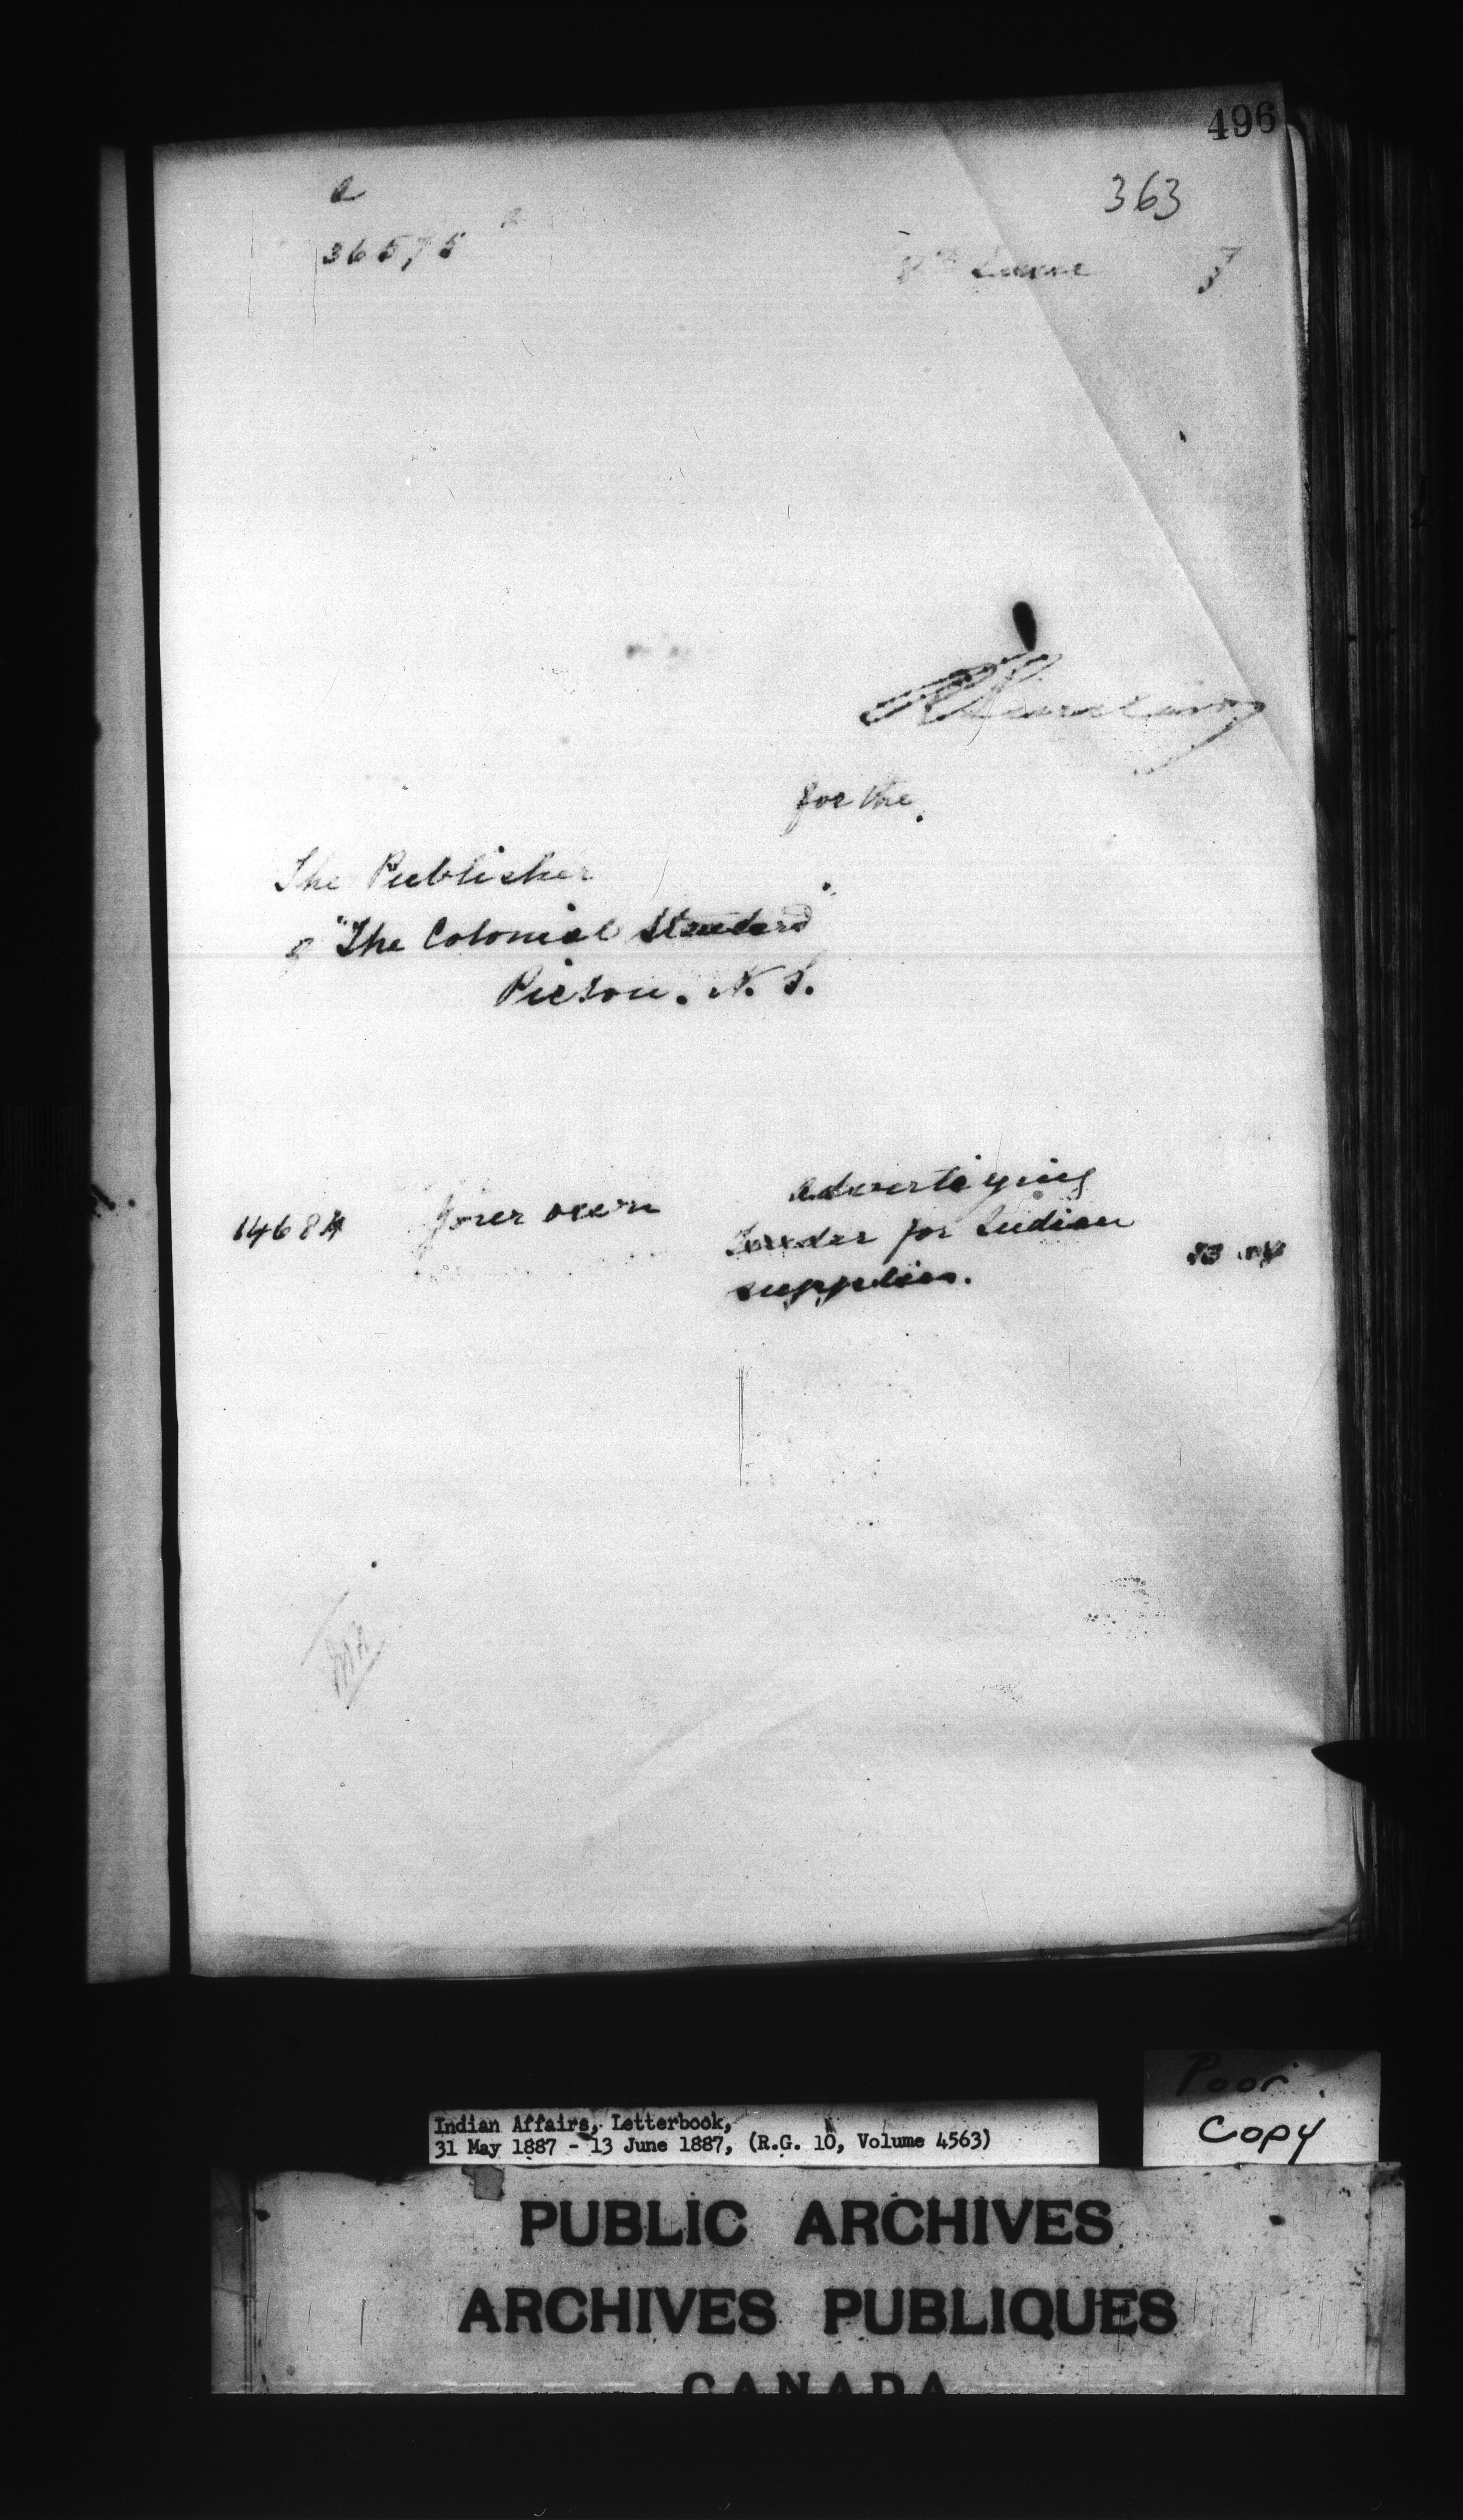 496
363
a
36575
8th June 7
for the
The Publisher
of "The Colonial Standard"
Pictou. N. S.
advertizing
14684 your own
tender for Indian
supplies.
Poor
Copy
Indian Affairs, Letterbook,
31 May 1887 - 13 June 1887, (R.G. 10, Volume 4563)
PUBLIC ARCHIVES
ARCHIVES PUBLIQUES
CANADA